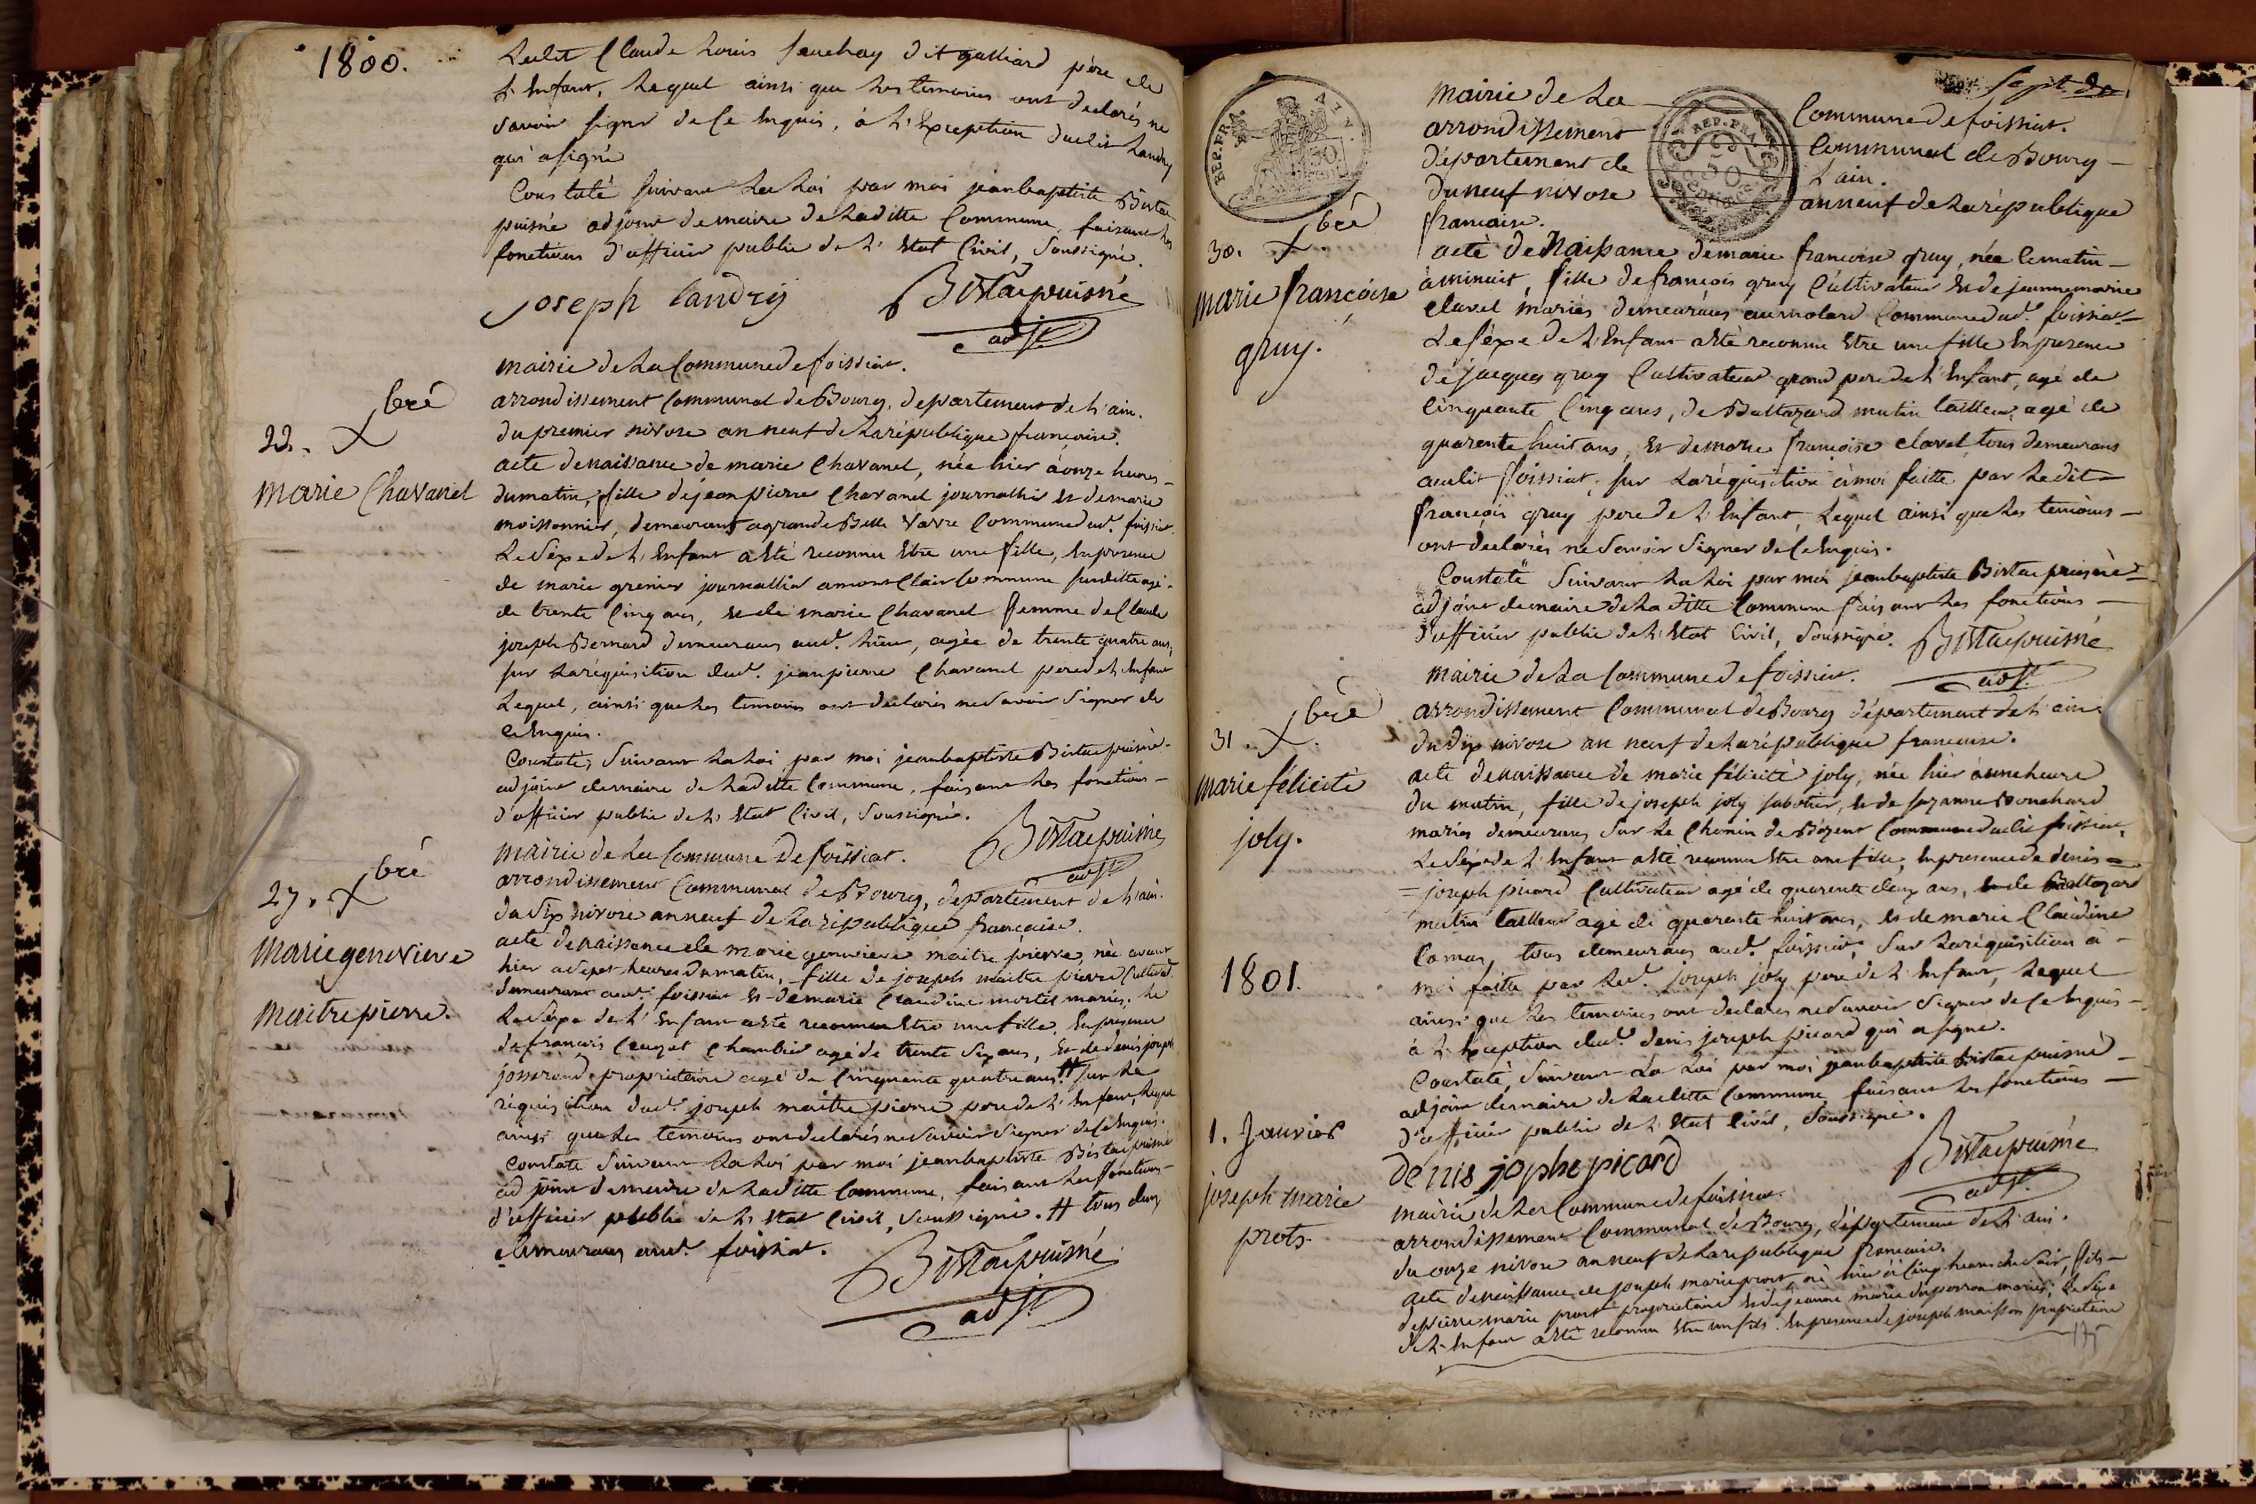 1800.
Ledit Claude Louis Jauchay dit galliard père de
L'Enfant, Lequel ainsi que Les temoins ont declarés ne
Savoir signer de Ce Enquis, à L'Exception dudit Landry
qui a signé
Constaté suivant La Loi par moi jean baptiste Bistac
puisné adjoint de maire de Laditte Commune, faisant Les
fonctions d'officier public de L'Etat Civil, Soussigné.
Joseph Landry
Bistac puisné
adjt.
22. Xbré
Marie Chavanel
mairie de La Commune de foissiat.
arrondissement Communal de Bourg, departement de L'ain.
du premier nivose an neuf de La république françoise.
acte de naissance de marie Chavanel, née hier à onze heures
du matin, fille de jean pierre Chavanel journallier Et de marie
moissonnier, demeurant a grande Belle Vavre Commune dud. foissiat
Le Séxe de L'Enfant a Eté reconnu Etre une fille, En présence
de marie grenier journallier a mont Clair Commune Susditte agé
de trente Cinq ans, et de marie Chavanel femme de Claude
joseph Bernard demeurans aud. Lieu, agée de trente quatre ans,
sur La réquisition dud. jean pierre Chavanel pere de L'Enfant
Lequel, ainsi que Les temoins ont declarés ne Savoir Signer de
Ce Enquis.
Constaté, Suivant La Loi, par moi jean baptiste Bistac puisné
adjoint de maire de Laditte Commune, faisant Les fonctions
d'officier public de L'Etat Civil, Soussigné.
Bistac puisné
adjt
27. Xbré
Marie genevieve
Maitrepierre.
mairie de La Commune de foissiat.
arrondissement Communal de Bourg, departement de L'ain.
du Six nivose an neuf de La république françoise.
acte de naissance de marie genevieve maitre pierre, née avant
hier a Sept heures du matin, fille de joseph maitre pierre Cultivat.
demeurant aud. foissiat Et de marie Claudine mortel mariés. Le
Le Séxe de L'Enfant a Eté reconnu Etre une fille, En présence
de françois Chambier agé de trente Six ans, Et de denis joseph
josserand proprietaire agé de Cinquante quatre ans # sur La
réquisition dud. joseph maitre pierre pere de L'Enfant, Lequel
ainsi que Les temoins ont declarés ne Savoir Signer de Ce Enquis.
Constaté Suivant La Loi par moi jean baptiste Bistac puisné
adjoint de maire de Laditte Commune, faisant Les fonctions
d'officier public de L'Etat Civil, Soussigné. # tous deux
demeurans aud. foissiat.
Bistac puisné
adjt.
Sept
REP. FRA.
REP. FRA.
50
mairie de La Commune de foissiat.
arrondissement Communal de Bourg
département de L'ain.
du neuf nivose an neuf de La république
francaise.
30. Xbré
Marie françoise
gruy.
acte de Naissance de marie françoise gruy, née Ce matin
à minuit, fille de françois gruy Cultivateur Et de jeanne marie
clavel mariés demeurans au molard Commune dud. foissiat
Le Séxe de L'Enfant a Eté reconnu Etre une fille En presence
de jacques gruy Cultivateur grand pere de L'Enfant, agé de
Cinquante Cinq ans, de Baltazard mutin tailleur, agé de
quarente huit ans, Et de marie françoise clavel, tous demeurans
audit foissiat, sur La réquisition à moi faitte par Ledit
françois gruy pere de L'Enfant, Lequel ainsi que Les temoins
ont declarés ne Savoir Signer de Ce Enquis.
Constaté Suivant La Loi par moi jean baptiste Bistac puisné
adjoint de maire de La ditte Commune faisant Les fonctions
d'officier public de L'Etat Civil, Soussigné.
Bistac puisné
adjt.
31. Xbré
Marie félicité
joly.
mairie de La Commune de foissiat.
arrondissement Communal de Bourg département de L'ain
du dix nivose an neuf de La république francaise.
acte de naissance de marie félicité joly, née hier à une heure
du matin, fille de joseph joly sabotier, Et de suzanne Bouchard
mariés demeurans Sur Le Chemin de Commune dudit foissiat,
Le Séxe de L'Enfant a Eté reconnu Etre une fille, En presence de denis
joseph picard Cultivateur agé de quarente deux ans, de Baltazard
mutin tailleur agé de quarente huit ans, Et de marie Claudine
Comas, tous demeurans aud. foissiat, Sur La réquisition à
moi faitte par Led. joseph joly pere de L'Enfant, Lequel
ainsi que Les temoins ont declarés ne Savoir Signer de Ce Enquis
à L'Exception dud. denis joseph picard qui a signé.
Constaté, Suivant La Loi par moi jean baptiste Bistac puisné
adjoint de maire de Laditte Commune faisant Les fonctions
d'officier public de L'Etat Civil, Soussigné.
denis jophe picard
Bistac puisné
adjt.
1801.
1. Janvier
joseph Marie
prots
mairie de La Commune de foissiat.
arrondissement Communal de Bourg, département de L'ain.
du onze nivose an neuf de La république francaise.
acte de naissance de joseph marie prost, né hier à Cinq heures du Soir, fils
de pierre marie prost proprietaire Et de jeanne marie duperron mariés, Le Séxe
de L'Enfant a Eté reconnu Etre un fils. En presence de joseph maisson proprietaire